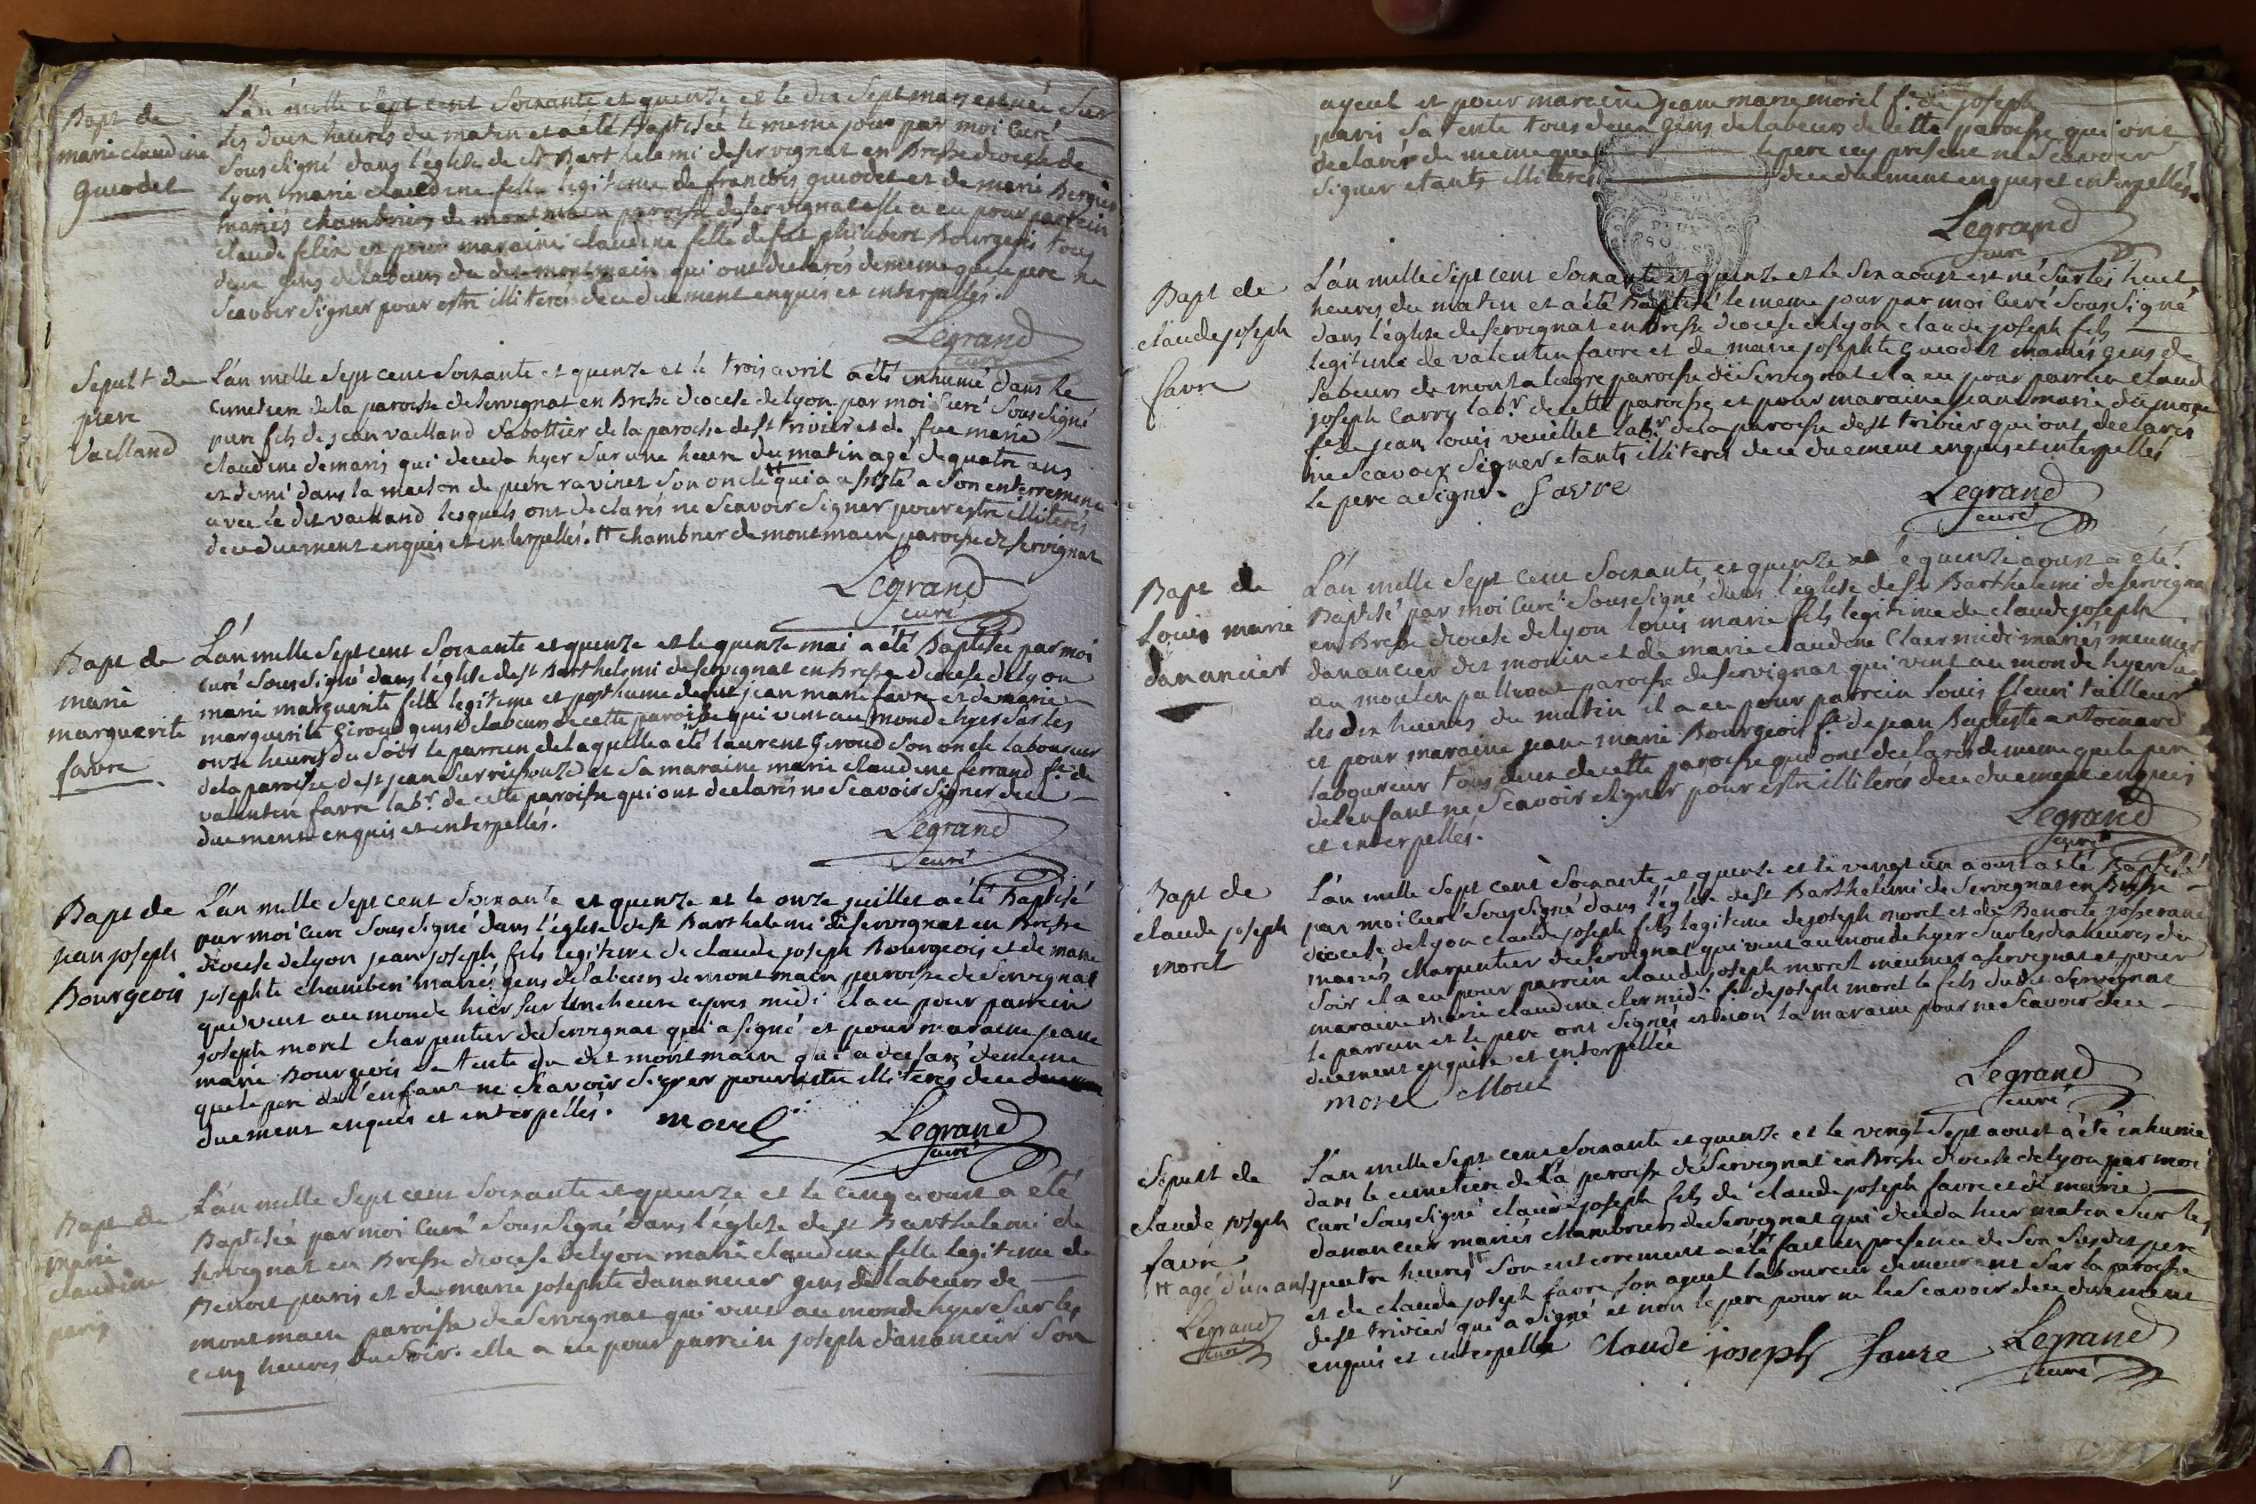 Bapt de
marie claudine
guiodet
L'an mille sept cent soixante et quinze et le dix sept mars est née sur
les deux heures du matin et a été Baptisée le meme jour par moi curé
sous signé dans l'église de st Barthelemi de servignat en Bresse diocese de
Lyon marie claudine fille legitime de francois guiodet et de marie Bergier
mariés chambriers de montmain paroisse de servignat elle a eu pour parrein
claude felix et pour maraine claudine fille de fut philibert Bourgeois tous
deux gens de labeurs du dit montmain qui ont declarés de meme que le pere ne
scavoir signer pour estre illiterés de ce duement enquis et interpellés.
Legrand
curé
Sepult de
piere
Vailland
L'an mille sept cent soixante et quinze et le trois avril a été inhumé dans le
cimetiere de la paroisse de servignat en Bresse diocese de lyon par moi curé sous signé
piere fils de jean vailland sabottier de la paroisse de st trivier et de fue marie
claudine demaris qui deceda hyer sur une heure du matin agé de quatre ans
et demi dans la maison de piere ravinet son oncle # qui a assisté a son enterrement
avec le dit vailland lesquels ont declarés ne scavoir signer pour estre illiterés
de ce duement enquis et interpellés. # chambrier de montmain paroisse de servignat
Legrand
curé
Bapt de
marie
marguerite
favre
L'an mille sept cent soixante et quinze et le quinze mai a été Baptisée par moi
curé sous signé dans l'église de st Barthelemi de servignat en bresse diocese de lyon
marie marguerite fille legitime et posthume de fut jean marie favre et de marie
marguerite Giroud gens de labeurs de cette paroisse qui vint au monde hyer sur les
onze heures du soir le parrein de laquelle a été laurent Giroud son oncle laboureur
de la paroisse de st jean sur rissouze et sa maraine marie claudine ferrand fe de
valentin favre labr de cette paroisse qui ont declarés ne scavoir signer de ce
duement enquis et interpellés.
Legrand
curé
Bapt de
jean joseph
Bourgeois
L'an mille sept cent soixante et quinze et le onze juillet a été Baptisé
par moi curé sous signé dans l'église de st Barthelemi de servignat en Bresse
diocese de lyon jean joseph fils legitime de claude joseph Bourgeois et de marie
josephte chamberi mariés gens de labeurs de montmain paroisse de servignat
qui vint au monde hier sur une heure apres midi il a eu pour parrein
joseph morel charpentier de servignat qui a signé et pour maraine jeane
marie Bourgeois sa tente du dit montmain qui a declaré de meme
que le pere de l'enfant ne scavoir signer pour estre illiterés de ce
duement enquis et interpellés.
morel
Legrand
curé
Bapt de
marie
claudine
paris
L'an mille sept cent soixante et quinze et le cinq aoust a été
Baptisée par moi curé sous signé dans l'église de st Barthelemi de
servignat en Bresse diocese de lyon marie claudine fille legitime de
Benoit paris et de marie josephte danancier gens de labeurs de
montmain paroisse de servignat qui vint au monde hyer sur les
cinq heures du soir. elle a eu pour parrein joseph danancier son
ayeul et pour maraine jeane marie morel fe de joseph
paris sa tente tous deux gens de labeurs de cette paroisse qui ont
declarés de meme que le pere icy present ne scavoir
signer etants illiterés de ce duement enquis et interpellés.
Legrand
curé
Bapt de
claude joseph
favre
L'an mille sept cent soixante et quinze et le six aoust est né sur les huit
heures du matin et a été baptisé le meme jour par moi curé sous signé
dans l'église de servignat en bresse diocese de lyon claude joseph fils
legitime de valentin favre et de marie josephte guiodet mariés gens de
labeurs de montalegre paroisse de servignat il a eu pour parrein claud
joseph carry labr de cette paroisse et pour maraine jeane marie
fe de jean louis veuillet labr de la paroisse de st trivier qui ont declarés
ne scavoir signer etants illiterés de ce duement enquis et interpellés
le pere a signé. favre
Legrand
curé
Bapt de
Louis marie
danancier
L'an mille sept cent soixante et quinze et le quinze aoust a été
Baptisé par moi curé sous signé dans l'église de st Barthelemi de servignat
en Bresse diocese de lyon louis marie fils legitime de claude joseph
danancier dit monin et de marie claudine clermidi mariés meunier
au moulin paroisse de servignat qui vint au monde hyer sur
les dix heures du matin il a eu pour parrein louis fleuri tailleur
et pour maraine jeane marie Bourgeois fe de jean Baptiste antoinard
laboureur tous deux de cette paroisse qui ont declarés de meme que le pere
de l'enfant ne scavoir signer pour estre illiterés de ce duement enquis
et interpellés.
Legrand
curé
Bapt de
claude joseph
morel
L'an mille sept cent soixante et quinze et le vingt un aoust a été baptisé
par moi curé sous signé dans l'église de st Barthelemi de servignat en Bresse
diocese de lyon claude joseph fils legitime de joseph morel et de Benoite josserand
mariés charpentier de servignat qui vint au monde hyer sur les dix heures du
soir il a eu pour parrein claude joseph morel meunier a servignat et pour
maraine marie claudine clermidi fe de joseph morel le fils du dit servignat
le parrein et le pere ont signés et non la maraine pour ne scavoir de ce
duement enquise et interpellée
morel morel
Legrand
curé
Sepult de
claude joseph
favre
# agé d'un an
Legrand
curé
L'an mille sept cent soixante et quinze et le vingt sept aoust a été inhumé
dans le cimetiere de la paroisse de servignat en Bresse diocese de lyon par moi
curé sous signé claude joseph fils de claude joseph favre et de marie
danancier mariés chambriers de servignat qui deceda hier matin sur les
quatre heures # son enterrement a été fait en presence de son susdit pere
et de claude joseph favre son ayeul laboureur demeurant sur la paroisse
de st trivier qui a signé et non le pere pour ne le scavoir de ce duement
enquis et interpellé claude joseph faure Legrand
curé